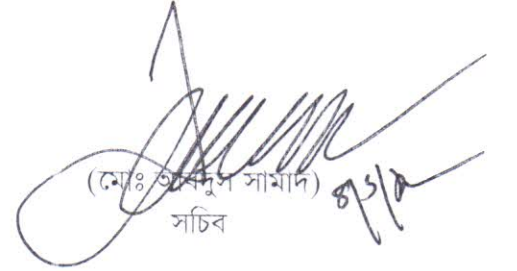 (মোঃ আবদুস সামাদ)
সচিব